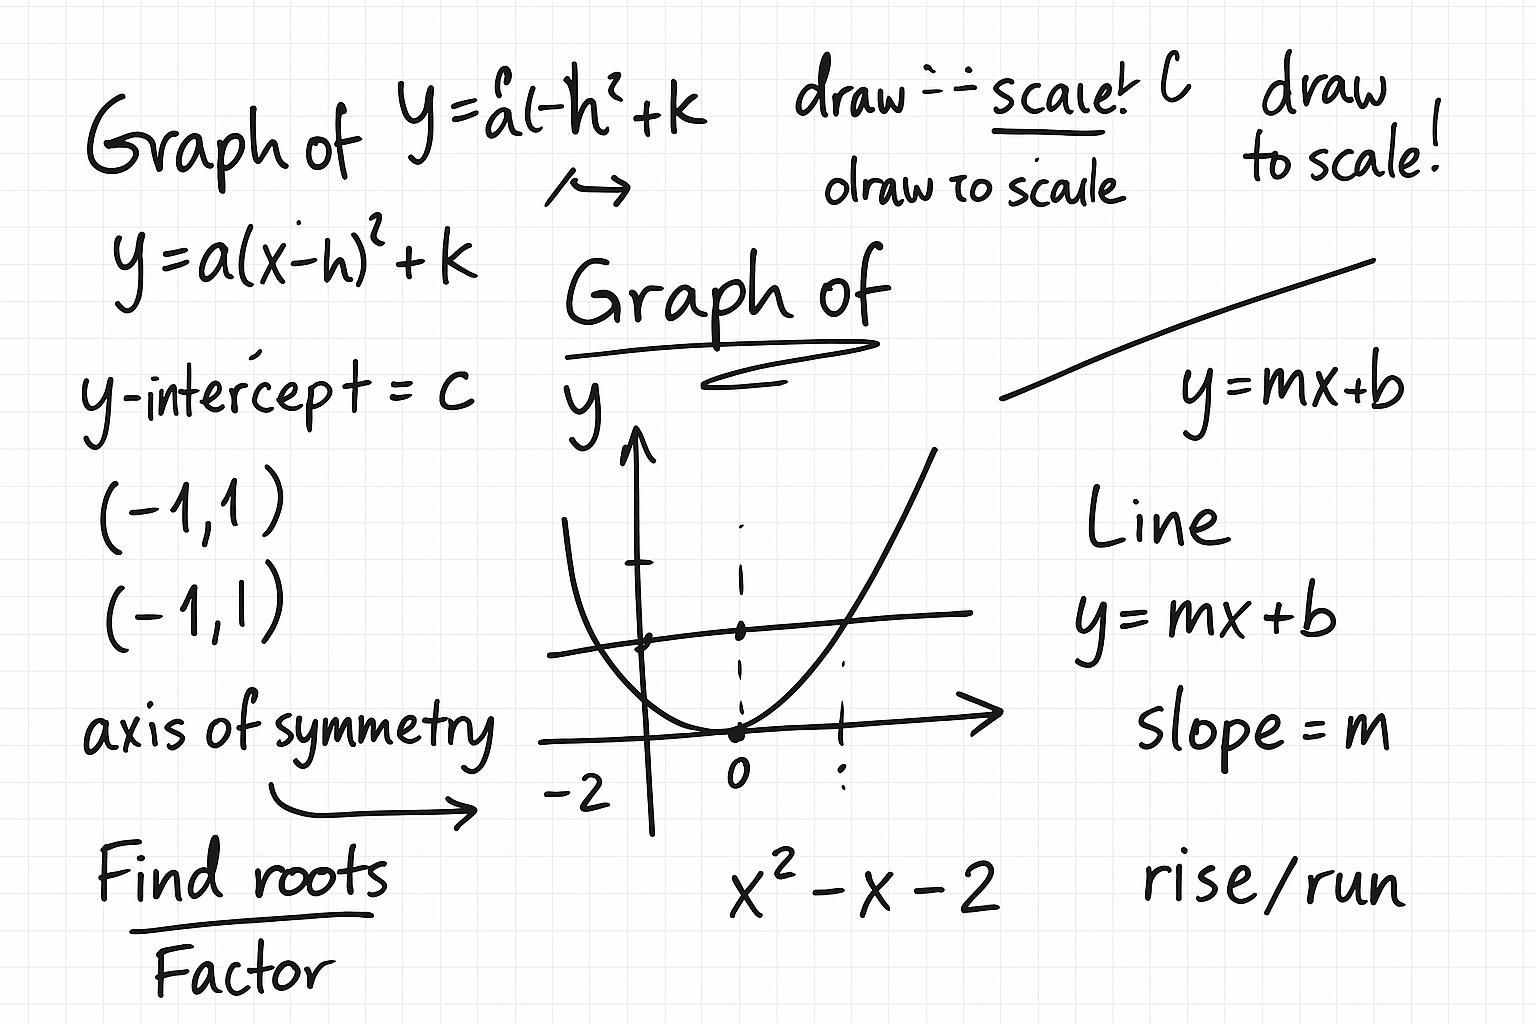 Graph of y=a(-h²+k
draw scale! C
draw
to scale!
draw to scale
y=a(x-h)²+k
Graph of
y-intercept = c
y
y=mx+b
(-1,1)
Line
(-1,1)
y=mx+b
axis of symmetry
slope = m
-2
0
Find roots
x²-x-2
rise/run
Factor